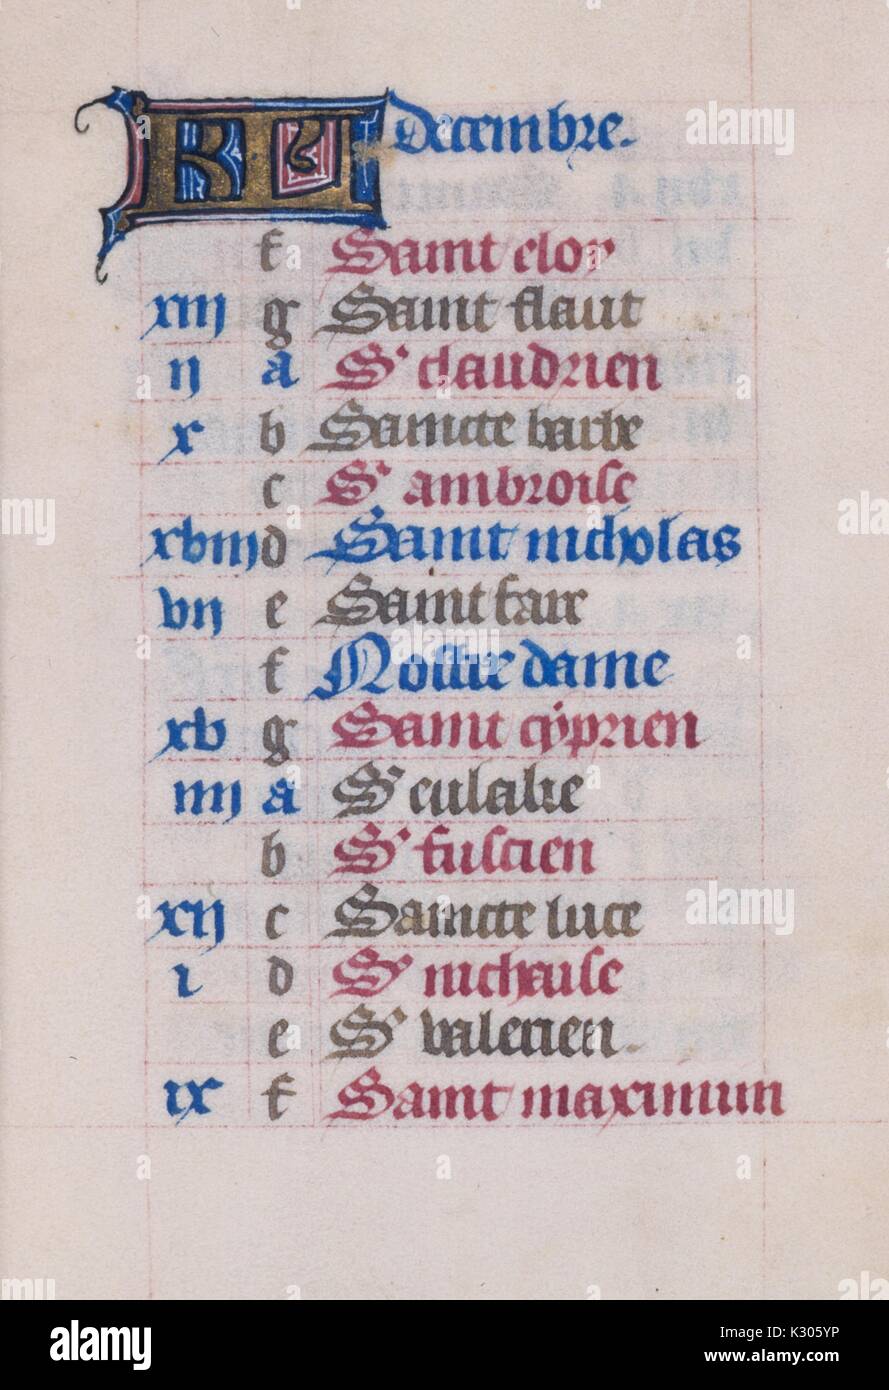 KL Decembre.
f Saint eloy
xiij g Saint flaut
ij a St claudrien
x b Saincte barbe
c St ambroise
xviij d Saint nicholas
vij e Saint fare
f Nostre dame
xv g Saint cyprien
iiij a St eulalie
b St fuscien
xij c Saincte luce
i d St nichaise
e St valerien.
ix f Saint maximin
alamy
Image ID: K305YP
www.alamy.com